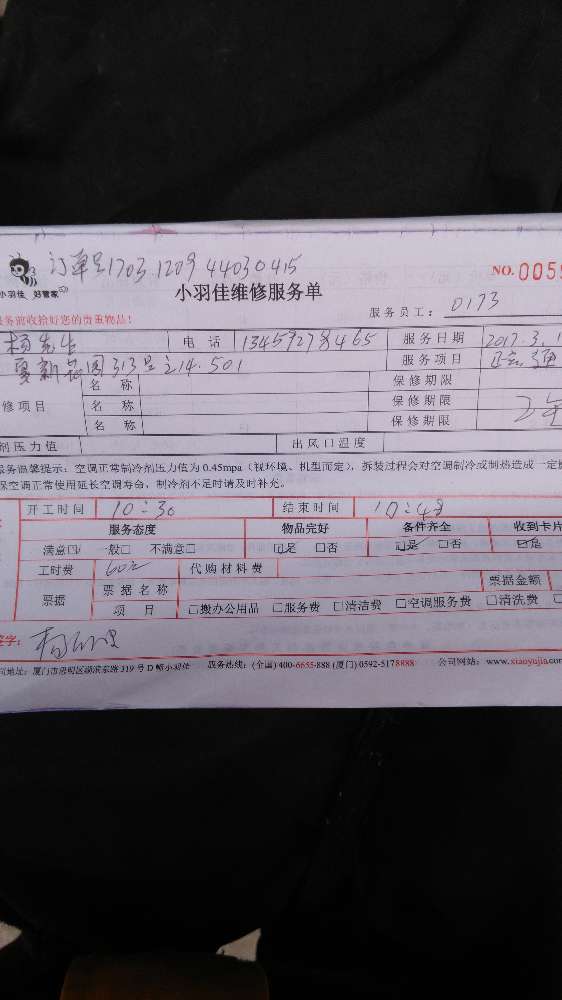 订单号1703 1209 44030415
NO. 0055
小羽佳 好管家
小羽佳维修服务单
服务前收拾好您的贵重物品!
服务员工: 0173
杨先生 电 话 13459278465 服务日期 2017.3.1
园313号之14.501 服务项目
名 称 保修期限
修项目 名 称 保修期限
名 称 保修期限 2年
剂压力值 出风口温度
服务温馨提示: 空调正常制冷剂压力值为 0.45mpa (视环境、机型而定), 拆装过程会对空调制冷或制热造成一定
保空调正常使用延长空调寿命, 制冷剂不足时请及时补充。
开工时间 10:30 结束时间 10:48
服务态度 物品完好 备件齐全 收到卡片
满意☑ 一般□ 不满意□ ☑是 □否 ☑是 □否 ☑是
工时费 60元 代购材料费
票据 票据名称 票据金额
项 目 □搬办公用品 □服务费 □清洁费 □空调服务费 □清洗费
签字:
司地址: 厦门市思明区湖滨东路 319 号 D 幢小羽佳 服务热线: (全国) 400-6655-888 (厦门) 0592-5178888 公司网站: www.xiaoyujia.com